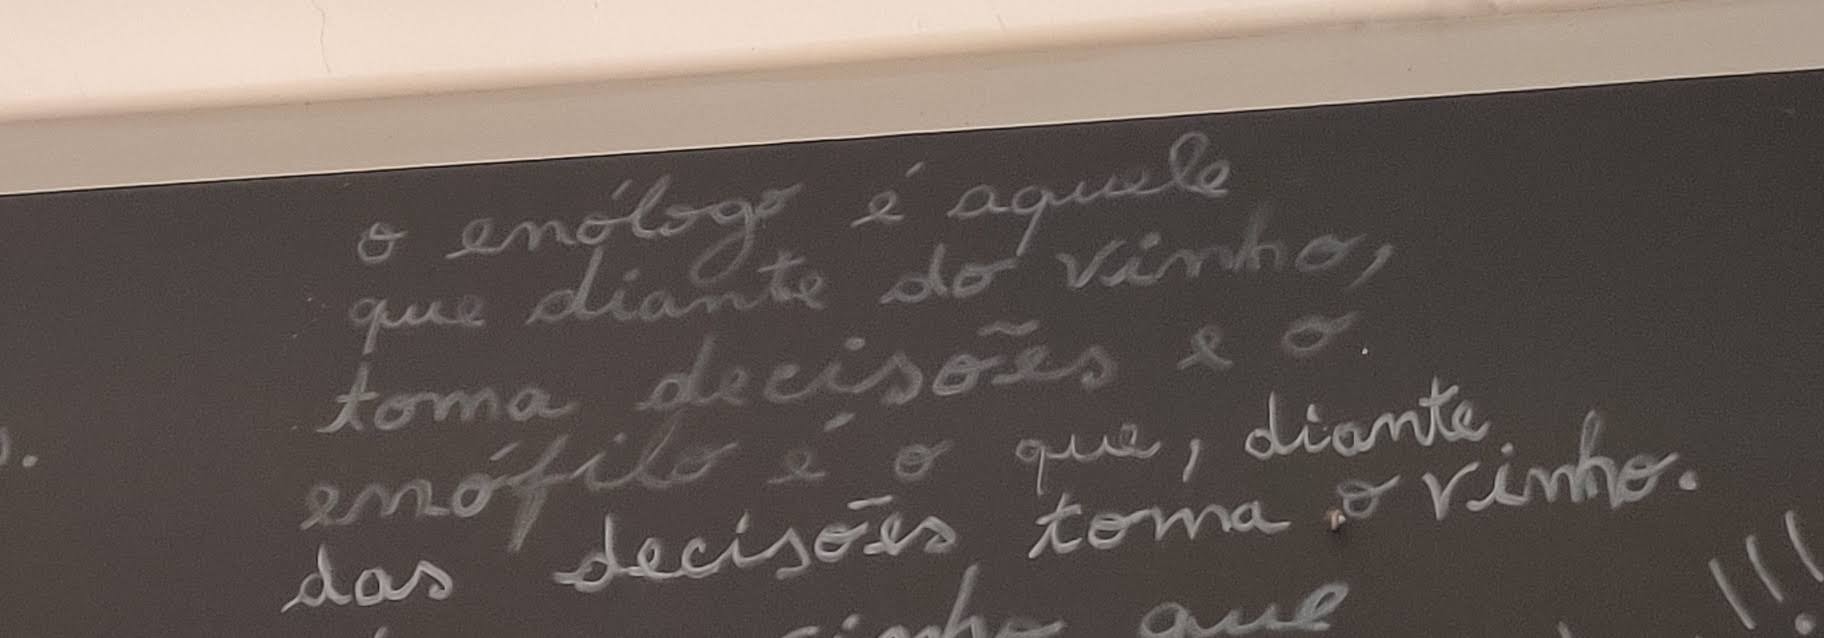 o enólogo é aquele
que diante do vinho,
toma decisões e o
enófilo é o que, diante
das decisões toma o vinho.
que
!!!